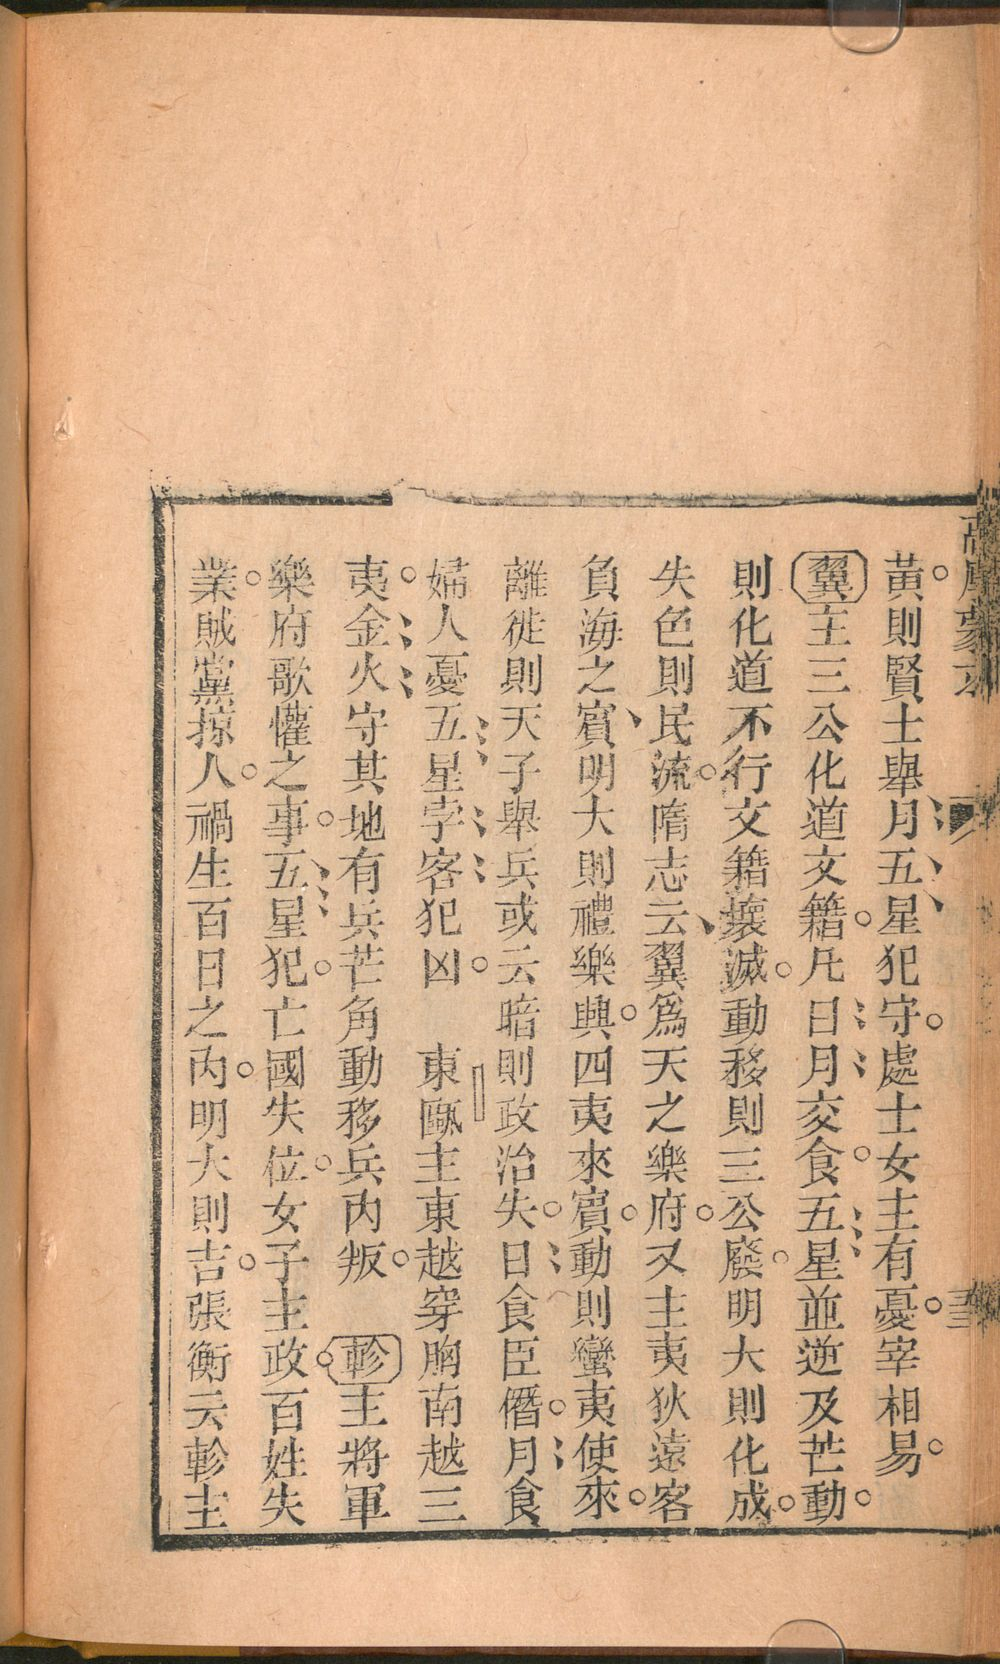 黃則賢士舉月五星犯守處士女主有憂宰相易
翼主三公化道文籍凡日月交食五星並逆及芒動
則化道不行文籍壞滅動移則三公廢明大則化成
失色則民流隋志云翼為天之樂府又主夷狄遠客
負海之賓明大則禮樂興四夷來賓動則蠻夷使來
離徙則天子舉兵或云暗則政治失日食臣僭月食
婦人憂五星孛客犯凶　東甌主東越穿胸南越三
夷金火守其地有兵芒角動移兵內叛　軫主將軍
樂府歌懽之事五星犯亡國失位女子主政百姓失
業賊黨掠人禍生百日之內明大則吉張衡云軫主